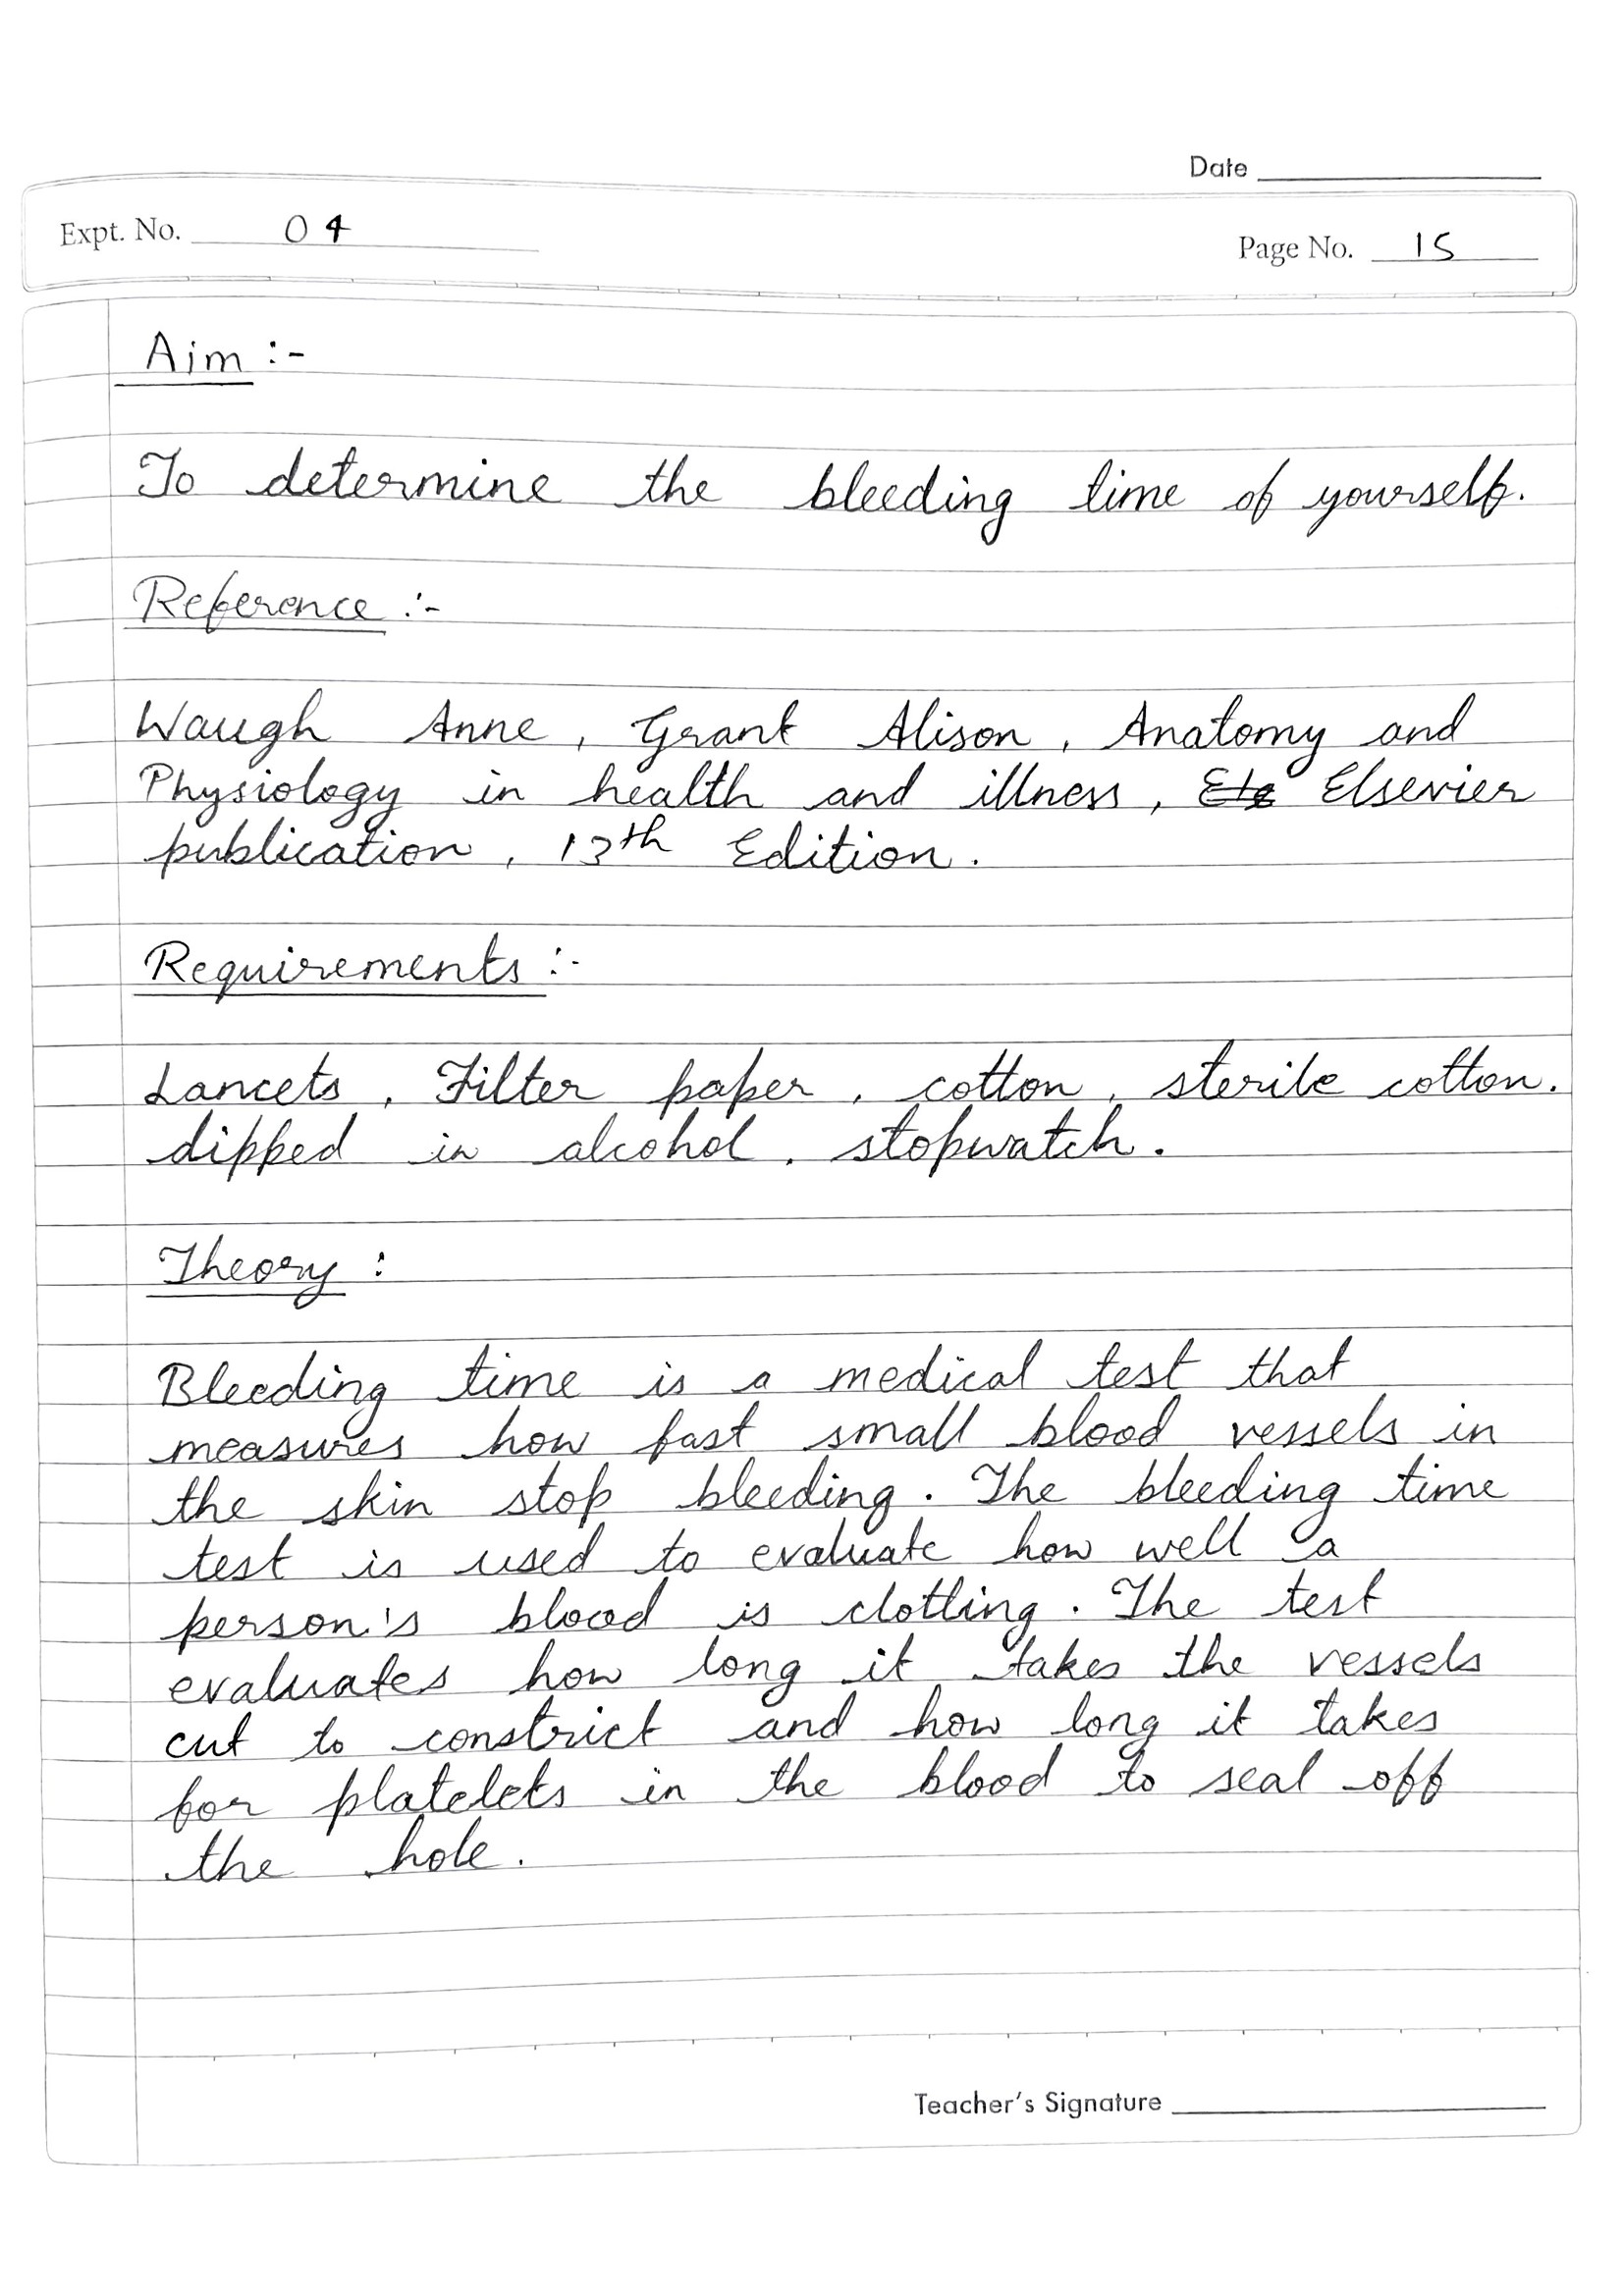 Date
Expt. No. 04
Page No. 15
Aim :-
To determine the bleeding time of yourself.
Reference :-
Waugh Anne, Grant Alison, Anatomy and
Physiology in health and illness, Elsevier
publication, 13th Edition.
Requirements :-
Lancets, Filter paper, cotton, sterile cotton.
dipped in alcohol, stopwatch.
Theory :
Bleeding time is a medical test that
measures how fast small blood vessels in
the skin stop bleeding. The bleeding time
test is used to evaluate how well a
person's blood is clotting. The test
evaluates how long it takes the vessels
cut to constrict and how long it takes
for platelets in the blood to seal off
the hole.
Teacher's Signature